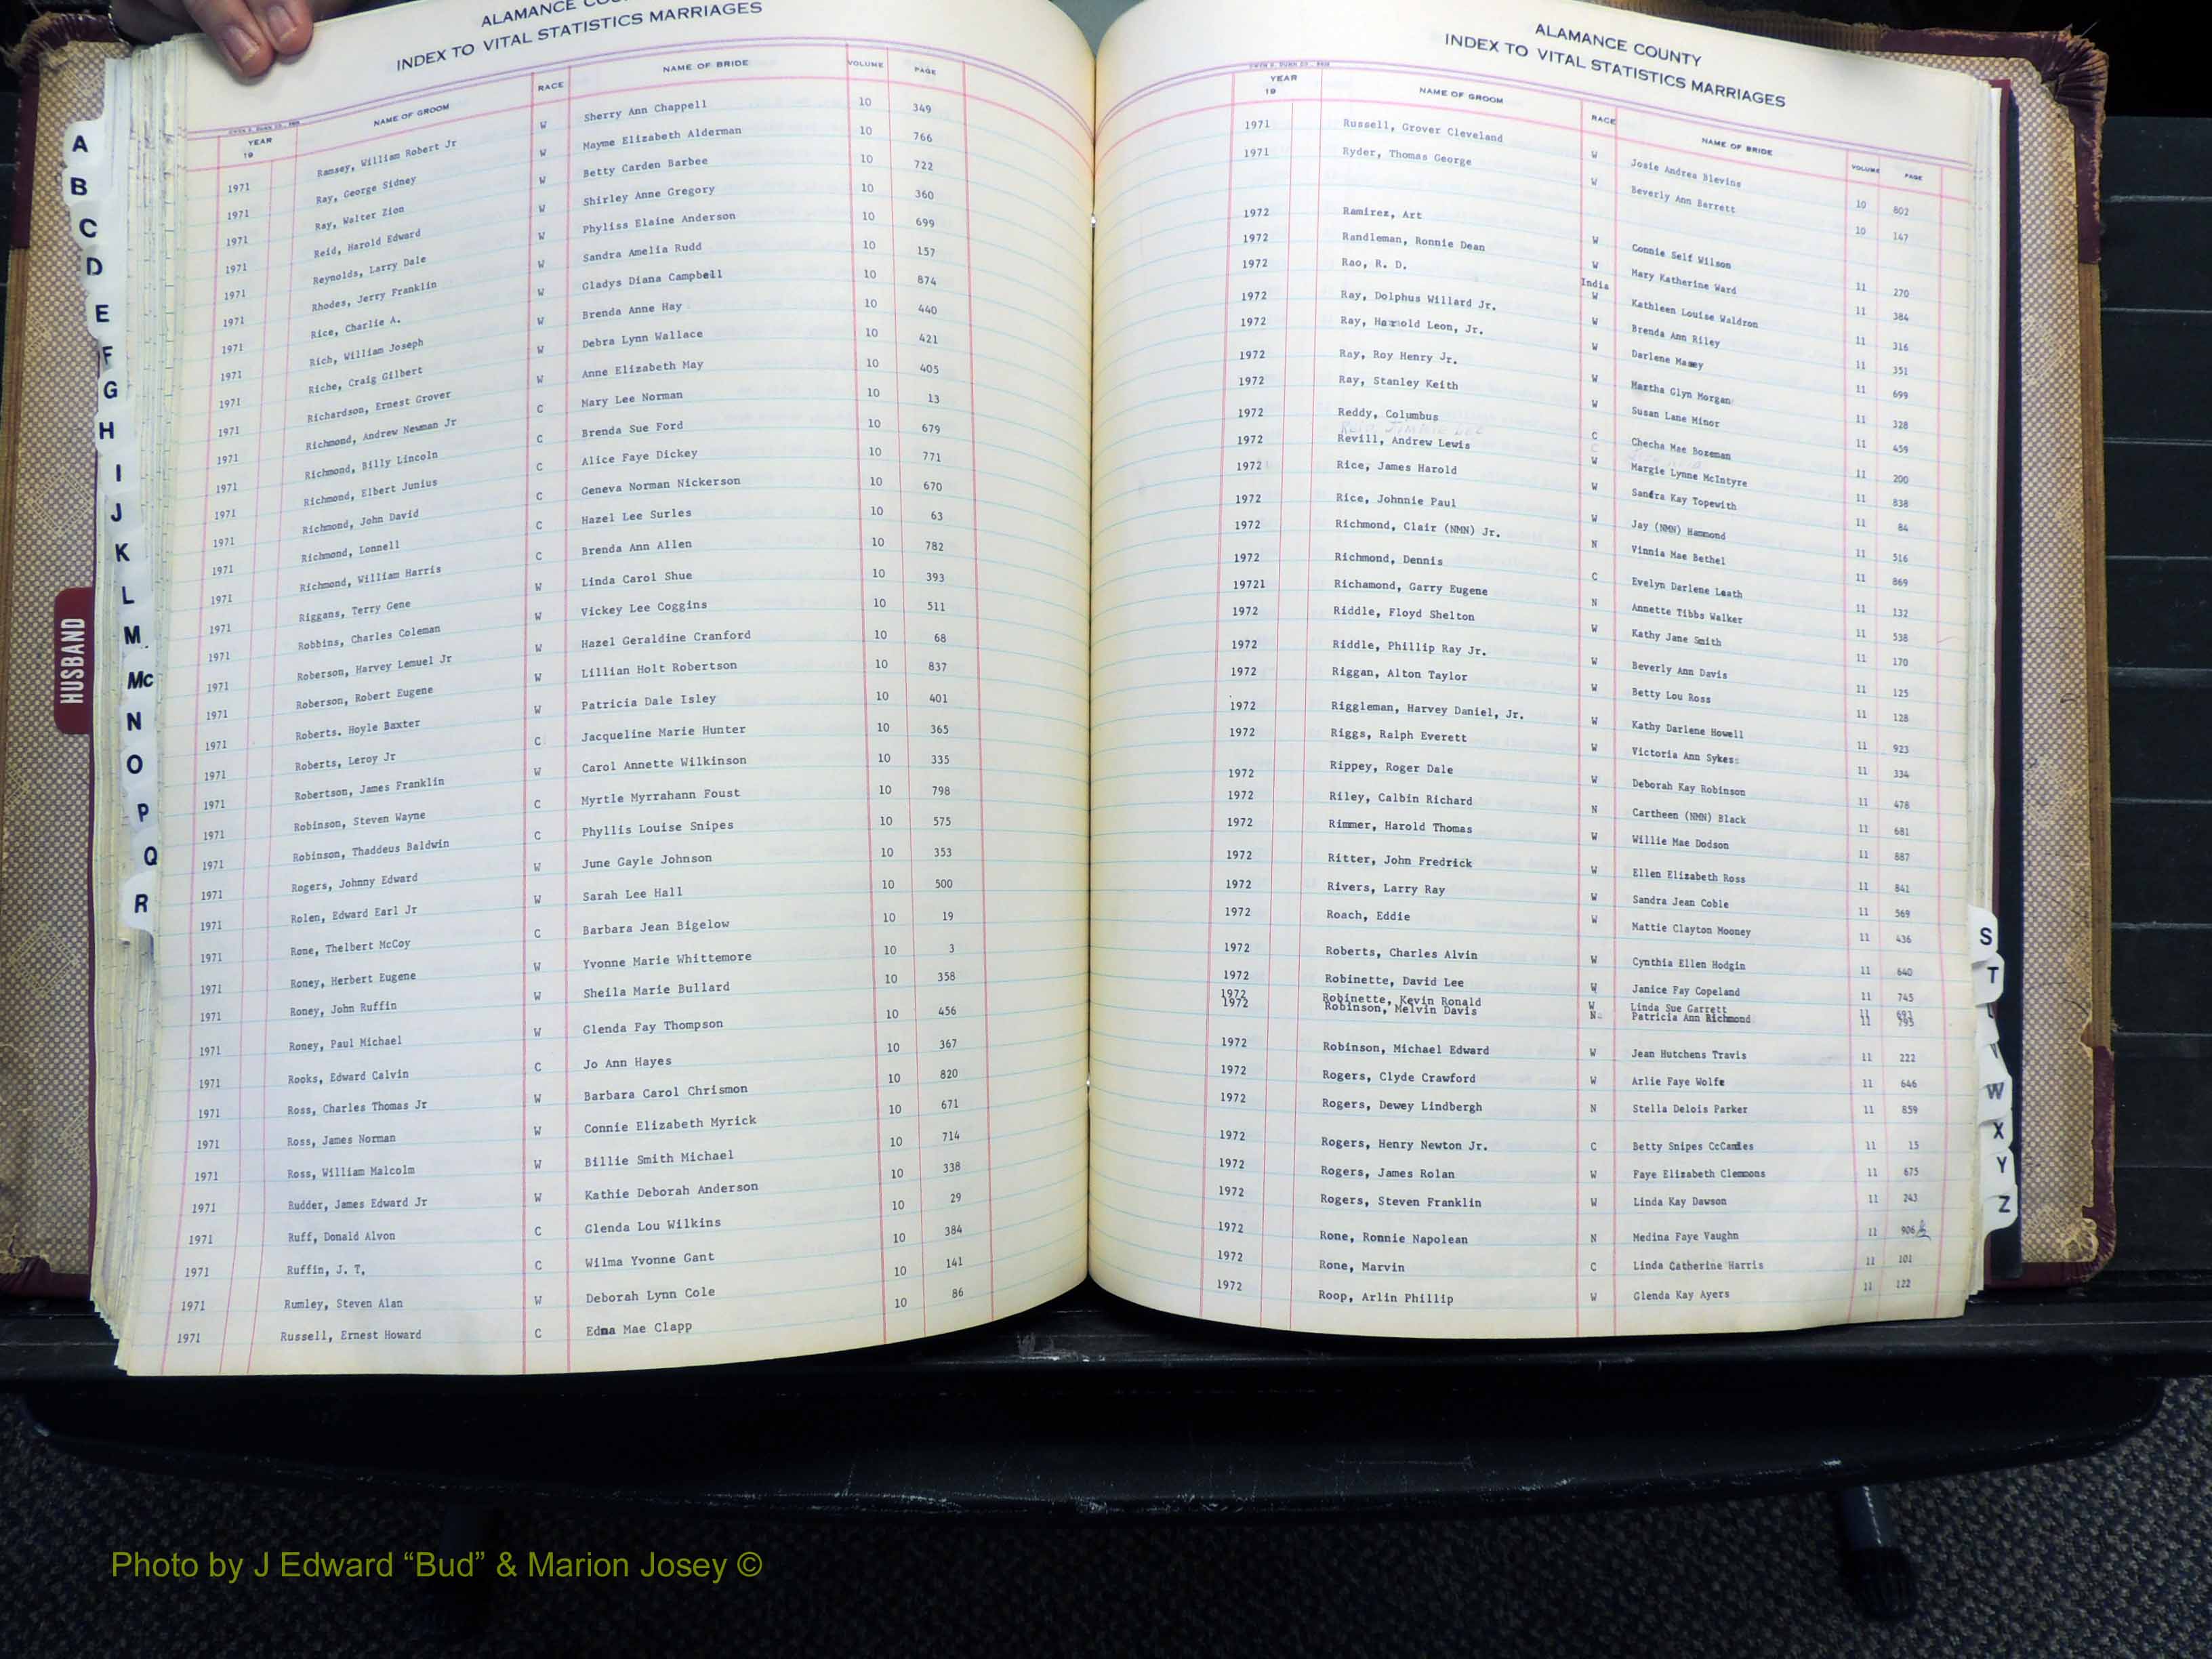 ALAMANCE
INDEX TO VITAL STATISTICS MARRIAGES
YEAR 19 NAME OF GROOM RACE NAME OF BRIDE VOLUME PAGE
1971 Ramsey, William Robert Jr W Sherry Ann Chappell 10 349
1971 Ray, George Sidney W Mayme Elizabeth Alderman 10 766
1971 Ray, Walter Zion W Betty Carden Barbee 10 722
1971 Reid, Harold Edward W Shirley Anne Gregory 10 360
1971 Reynolds, Larry Dale W Phyliss Elaine Anderson 10 699
1971 Rhodes, Jerry Franklin W Sandra Amelia Rudd 10 157
1971 Rice, Charlie A. W Gladys Diana Campbell 10 874
1971 Rich, William Joseph W Brenda Anne Hay 10 440
1971 Riche, Craig Gilbert W Debra Lynn Wallace 10 421
1971 Richardson, Ernest Grover W Anne Elizabeth May 10 405
1971 Richmond, Andrew Newman Jr C Mary Lee Norman 10 13
1971 Richmond, Billy Lincoln C Brenda Sue Ford 10 679
1971 Richmond, Elbert Junius C Alice Faye Dickey 10 771
1971 Richmond, John David C Geneva Norman Nickerson 10 670
1971 Richmond, Lonnell C Hazel Lee Surles 10 63
1971 Richmond, William Harris C Brenda Ann Allen 10 782
1971 Riggans, Terry Gene W Linda Carol Shue 10 393
1971 Robbins, Charles Coleman W Vickey Lee Coggins 10 511
1971 Roberson, Harvey Lemuel Jr W Hazel Geraldine Cranford 10 68
1971 Roberson, Robert Eugene W Lillian Holt Robertson 10 837
1971 Roberts. Hoyle Baxter W Patricia Dale Isley 10 401
1971 Roberts, Leroy Jr C Jacqueline Marie Hunter 10 365
1971 Robertson, James Franklin W Carol Annette Wilkinson 10 335
1971 Robinson, Steven Wayne C Myrtle Myrrahann Foust 10 798
1971 Robinson, Thaddeus Baldwin C Phyllis Louise Snipes 10 575
1971 Rogers, Johnny Edward W June Gayle Johnson 10 353
1971 Rolen, Edward Earl Jr W Sarah Lee Hall 10 500
1971 Rone, Thelbert McCoy C Barbara Jean Bigelow 10 19
1971 Roney, Herbert Eugene W Yvonne Marie Whittemore 10 3
1971 Roney, John Ruffin W Sheila Marie Bullard 10 358
1971 Roney, Paul Michael W Glenda Fay Thompson 10 456
1971 Rooks, Edward Calvin C Jo Ann Hayes 10 367
1971 Ross, Charles Thomas Jr W Barbara Carol Chrismon 10 820
1971 Ross, James Norman W Connie Elizabeth Myrick 10 671
1971 Ross, William Malcolm W Billie Smith Michael 10 714
1971 Rudder, James Edward Jr W Kathie Deborah Anderson 10 338
1971 Ruff, Donald Alvon C Glenda Lou Wilkins 10 29
1971 Ruffin, J. T. C Wilma Yvonne Gant 10 384
1971 Rumley, Steven Alan W Deborah Lynn Cole 10 141
1971 Russell, Ernest Howard C Edna Mae Clapp 10 86
A
B
C
D
E
F
G
H
I
J
K
L
M
Mc
N
O
P
Q
R
HUSBAND
ALAMANCE COUNTY
INDEX TO VITAL STATISTICS MARRIAGES
YEAR 19 NAME OF GROOM RACE NAME OF BRIDE VOLUME PAGE
1971 Russell, Grover Cleveland W Josie Andrea Blevins 10 802
1971 Ryder, Thomas George W Beverly Ann Barrett 10 147
1972 Ramirez, Art W Connie Self Wilson 11 270
1972 Randleman, Ronnie Dean W Mary Katherine Ward 11 384
1972 Rao, R. D. India Kathleen Louise Waldron 11 316
1972 Ray, Dolphus Willard Jr. W Brenda Ann Riley 11 351
1972 Ray, Harold Leon, Jr. W Darlene Massey 11 699
1972 Ray, Roy Henry Jr. W Martha Glyn Morgan 11 328
1972 Ray, Stanley Keith W Susan Lane Minor 11 459
1972 Reddy, Columbus C Checha Mae Bozeman 11 200
1972 Revill, Andrew Lewis W Margie Lynne McIntyre 11 838
1972 Rice, James Harold W Sandra Kay Topewith 11 84
1972 Rice, Johnnie Paul W Jay (NMN) Hammond 11 516
1972 Richmond, Clair (NMN) Jr. N Vinnia Mae Bethel 11 869
1972 Richmond, Dennis C Evelyn Darlene Leath 11 132
19721 Richamond, Garry Eugene N Annette Tibbs Walker 11 538
1972 Riddle, Floyd Shelton W Kathy Jane Smith 11 170
1972 Riddle, Phillip Ray Jr. W Beverly Ann Davis 11 125
1972 Riggan, Alton Taylor W Betty Lou Ross 11 128
1972 Riggleman, Harvey Daniel, Jr. W Kathy Darlene Howell 11 923
1972 Riggs, Ralph Everett W Victoria Ann Sykes 11 334
1972 Rippey, Roger Dale W Deborah Kay Robinson 11 478
1972 Riley, Calbin Richard N Cartheen (NMN) Black 11 681
1972 Rimmer, Harold Thomas W Willie Mae Dodson 11 887
1972 Ritter, John Fredrick W Ellen Elizabeth Ross 11 841
1972 Rivers, Larry Ray W Sandra Jean Coble 11 569
1972 Roach, Eddie W Mattie Clayton Mooney 11 436
1972 Roberts, Charles Alvin W Cynthia Ellen Hodgin 11 640
1972 Robinette, David Lee W Janice Fay Copeland 11 745
1972 Robinette, Kevin Ronald W Linda Sue Garrett 11 693
1972 Robinson, Melvin Davis N Patricia Ann Richmond 11 795
1972 Robinson, Michael Edward W Jean Hutchens Travis 11 222
1972 Rogers, Clyde Crawford W Arlie Faye Wolfe 11 646
1972 Rogers, Dewey Lindbergh N Stella Delois Parker 11 859
1972 Rogers, Henry Newton Jr. C Betty Snipes 11 15
1972 Rogers, James Rolan W Faye Elizabeth Clemmons 11 675
1972 Rogers, Steven Franklin W Linda Kay Dawson 11 243
1972 Rone, Ronnie Napolean N Medina Faye Vaughn 11 906
1972 Rone, Marvin C Linda Catherine Harris 11 101
1972 Roop, Arlin Phillip W Glenda Kay Ayers 11 122
S
T
W
X
Y
Z
Photo by J Edward “Bud” & Marion Josey ©